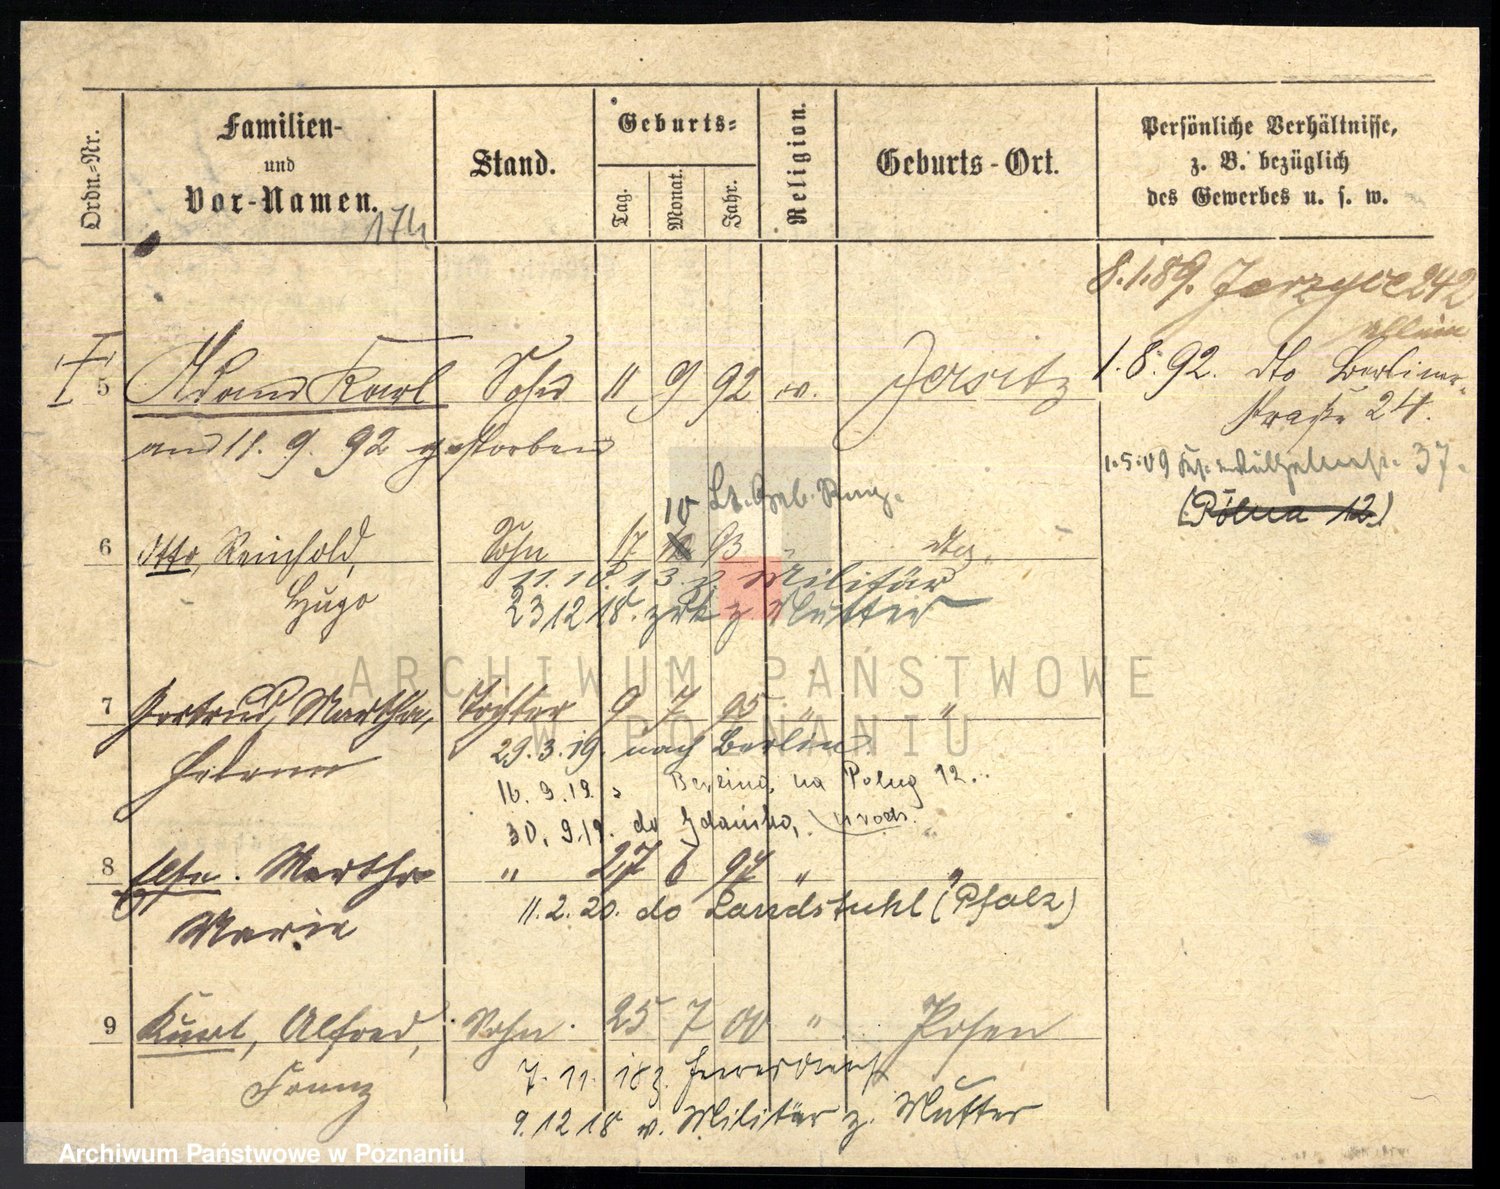 Ordn.-Nr.
Familien-
und
Vor-Namen.
Stand.
Geburts-
Tag.
Monat.
Jahr.
Religion.
Geburts-Ort.
Persönliche Verhältnisse,
z. B. bezüglich
des Gewerbes u. s. w.
174
8.1.89. Jerzyce 242
allein
1.8.92. dto Berliner-
straße 24.
5 Adam Karl Sohn 11 9 92 ev. Jersitz
am 11. 9. 92 gestorben
1.5.09 37.
(Polna 12)
10
6 Otto, Reinhold, Sohn 17 93 " dto.
Hugo
11.10.13. z. Militär
23 12 18. zrk z Mutter
7 Gertrud, Martha, Tochter 9 7 95 " "
Helene
29.3.19. nach Berlin.
16. 9. 19. z Berlina, na Polną 12.
30. 9. 19. do Gdańska, urodz.
8 Else. Martha " 27 6 97 " "
Marie
11. 2. 20. do Landstuhl (Pfalz)
9 Kurt, Alfred, Sohn 25 7 00 " Posen
Franz
7. 11. 18 z. Heeresdienst
9. 12 18 v. Militär z. Mutter
ARCHIWUM PAŃSTWOWE
W POZNANIU
Archiwum Państwowe w Poznaniu